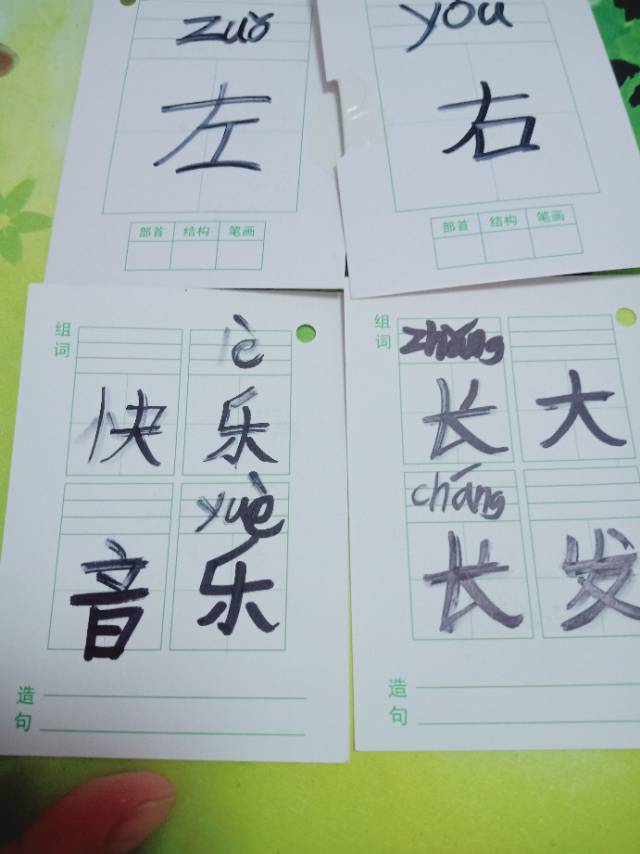 zuǒ
左
部首 结构 笔画
yòu
右
部首 结构 笔画
组词
è
快乐
yuè
音乐
造句
组词
zhǎng
长大
cháng
长发
造句